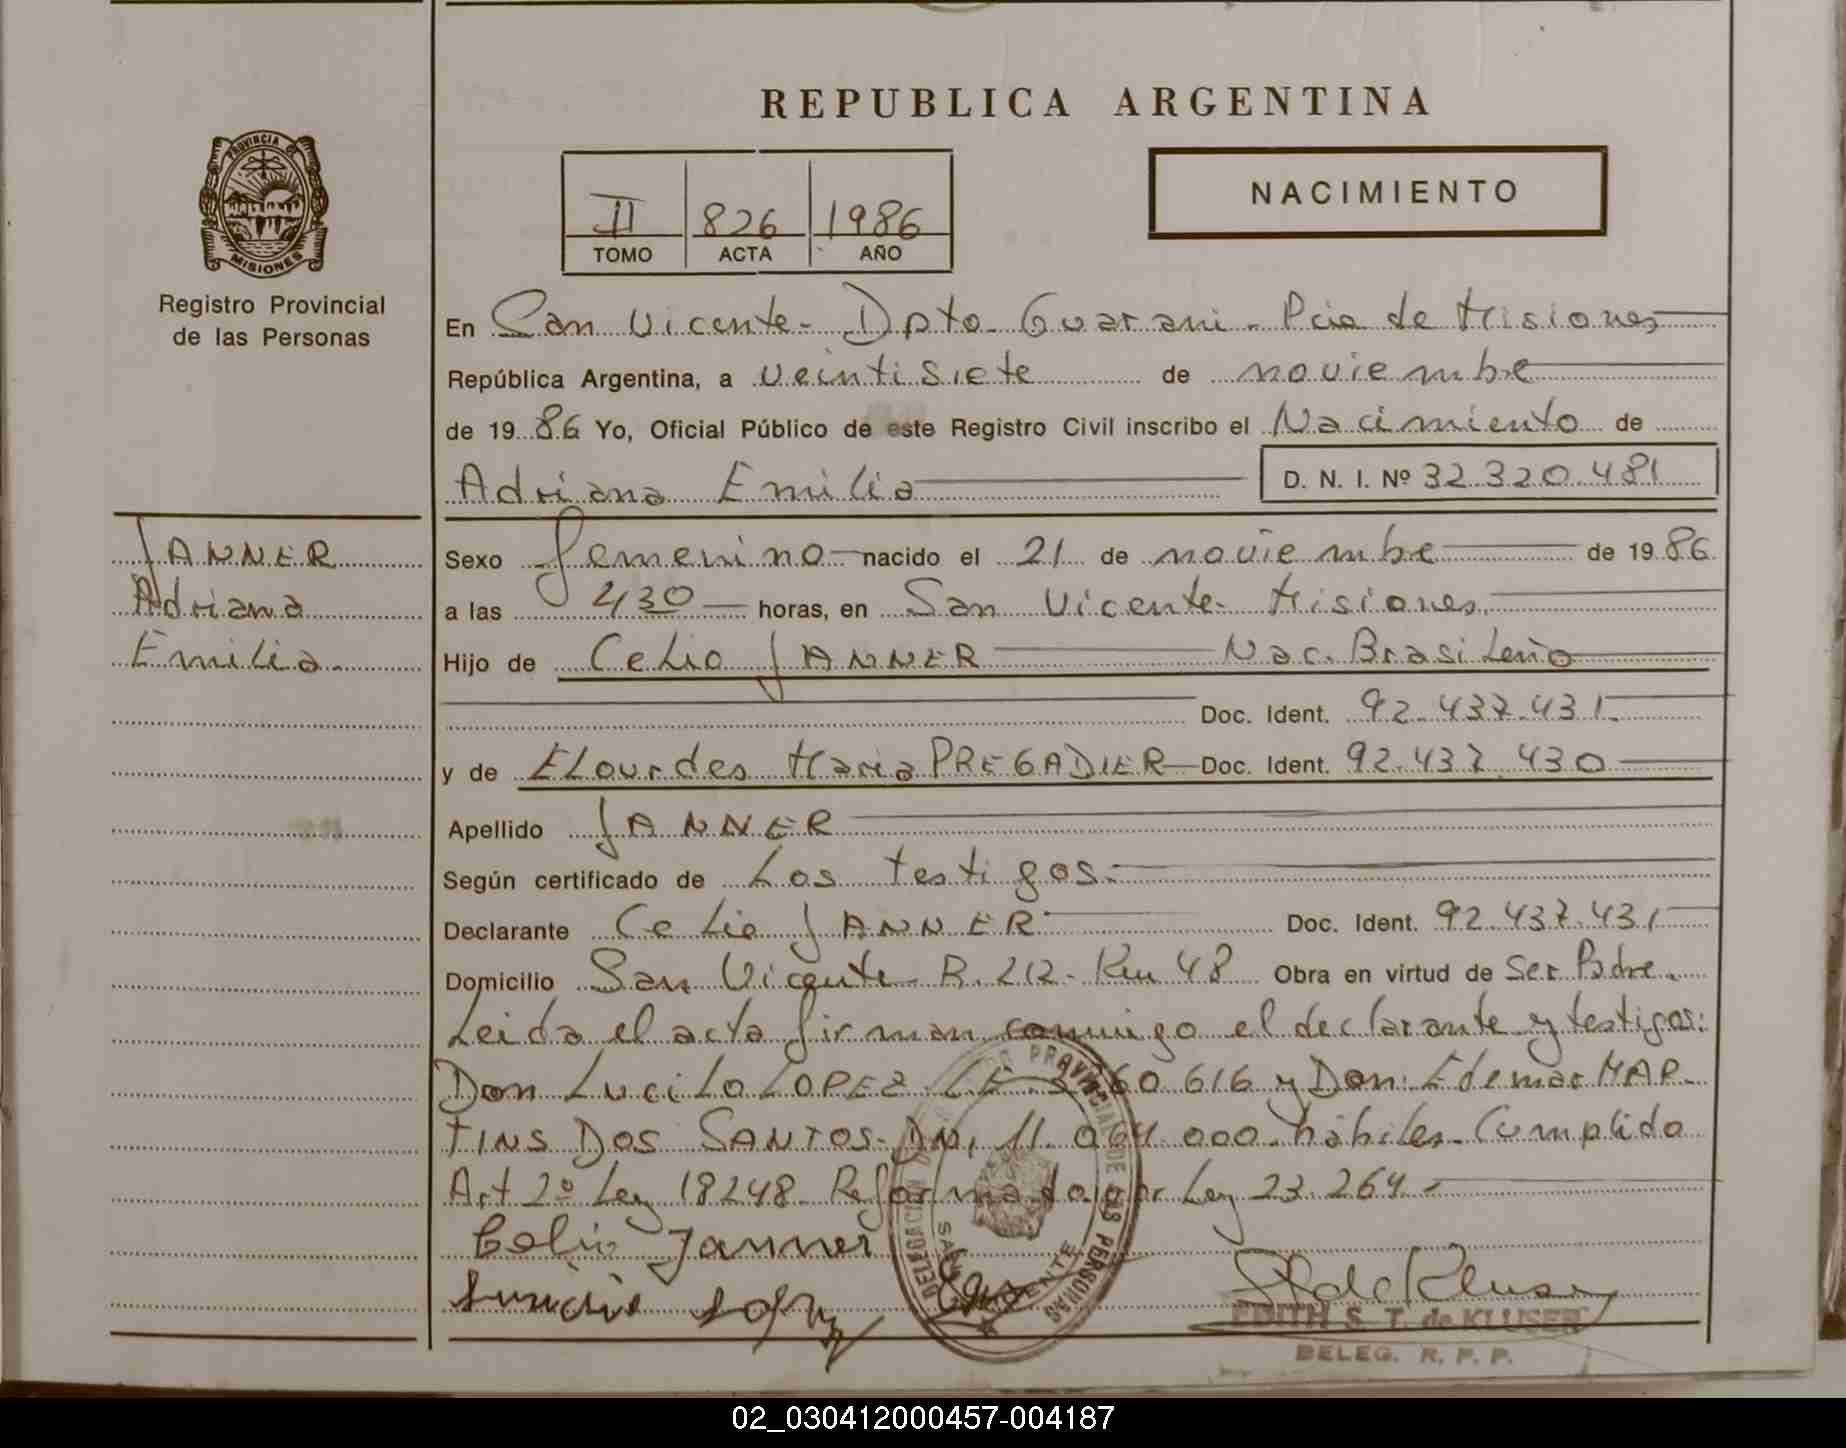 REPUBLICA ARGENTINA
PROVINCIA DE
MISIONES
Registro Provincial
de las Personas
II 826 1986
TOMO ACTA AÑO
NACIMIENTO
En San Vicente - Dpto - Guarani - Pcia de Misiones
República Argentina, a veintisiete de noviembre
de 1986 Yo, Oficial Público de este Registro Civil inscribo el Nacimiento de
Adriana Emilia D. N. I. Nº 32.320.481
JANNER
Adriana
Emilia.
Sexo femenino nacido el 21 de noviembre de 1986
a las 430 horas, en San Vicente - Misiones.
Hijo de Celio JANNER Nac. Brasileño
Doc. Ident. 92.437.431.
y de ELourdes Maria PREGADIER Doc. Ident. 92.437.430
Apellido JANNER
Según certificado de Los testigos.
Declarante Celio JANNER Doc. Ident. 92.437.431
Domicilio San Vicente R. 212 - Km 48 Obra en virtud de Ser Padre.
Leida el acta firman conmigo el declarante y testigos:
Don Lucilo LOPEZ LE 60.616 y Don: Edemar MAR-
TINS DOS SANTOS - 11.064.000 - hábiles - Cumplido
Art 2º Ley 18248 - Reformado por Ley 23.264 -
Celio Janner
DELEGACION
PROVINCIAL DE LAS PERSONAS
SAN VICENTE
EDITH S. T. de KLUSER
DELEG. R. P. P.
02_030412000457-004187